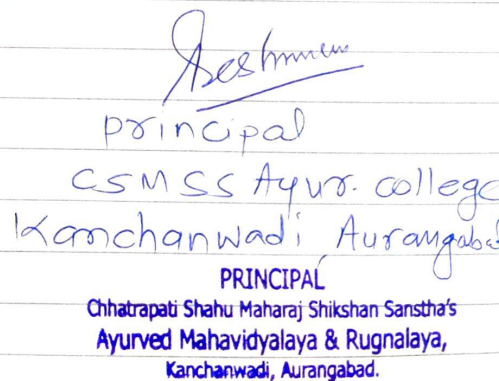 principal
CSMSS Ayur. college
Kanchanwadi, Aurangabad
PRINCIPAL
Chhatrapati Shahu Maharaj Shikshan Sanstha's
Ayurved Mahavidyalaya & Rugnalaya,
Kanchanwadi, Aurangabad.